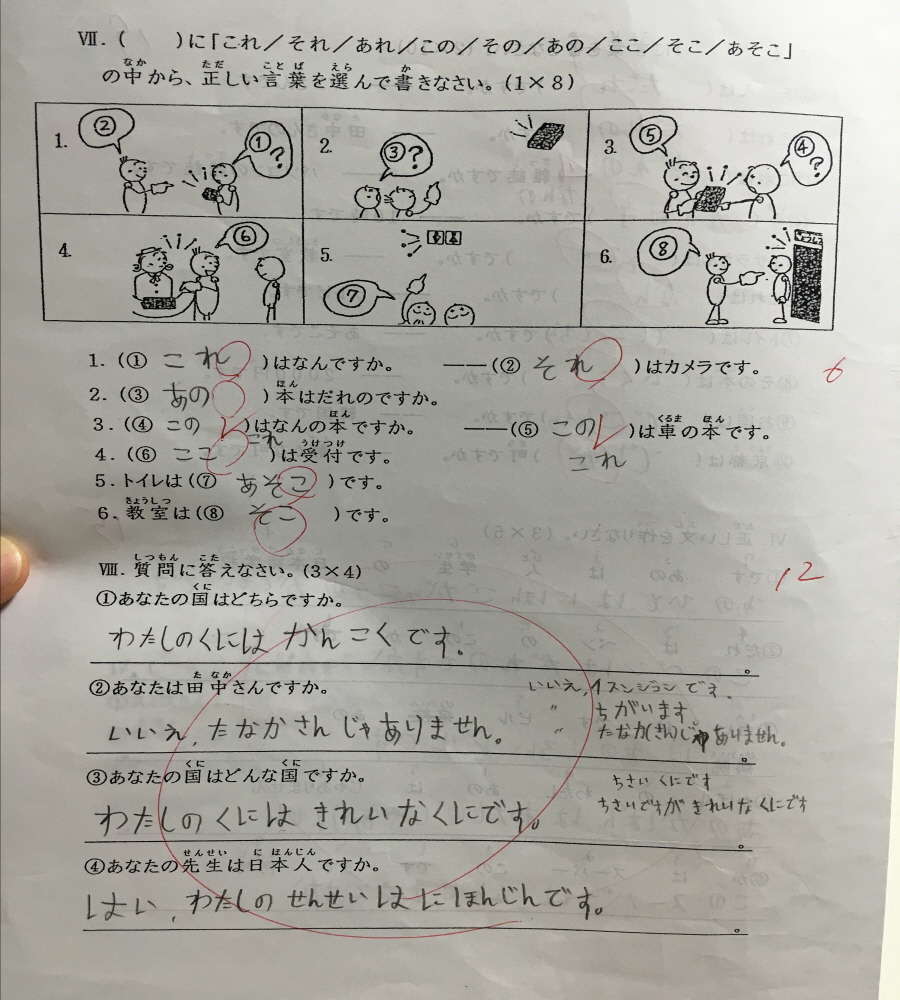 Ⅶ. (　　)に「これ／それ／あれ／この／その／あの／ここ／そこ／あそこ」
の中から、正しい言葉を選んで書きなさい。(1×8)
なか ただ ことば えら か
1. ② ① ?
2. ③ ?
3. ⑤ ④ ?
4. ⑥
5. ⑦
6. ⑧
1. (① これ )はなんですか。 ――(② それ )はカメラです。 6
2. (③ あの )本はだれのですか。
ほん
3. (④ この )はなんの本ですか。 ――(⑤ この )は車の本です。
これ ほん くるま ほん これ
4. (⑥ ここ )は受付です。
うけつけ
5. トイレは(⑦ あそこ )です。
6. 教室は(⑧ そこ )です。
きょうしつ
Ⅷ. 質問に答えなさい。(3×4) 12
しつもん こた
①あなたの国はどちらですか。
くに
わたしのくには かんこくです。
②あなたは田中さんですか。 いいえ,イスンジュンです.
た なか
〃 ちがいます
いいえ,たなかさんじゃありません。 〃 たなか(さん)じゃありません。
③あなたの国はどんな国ですか。 ちさい くにです
くに くに
ちさいですが きれいな くにです
わたしの くには きれいな くにです。
④あなたの先生は日本人ですか。
せんせい に ほんじん
はい,わたしの せんせい は にほんじんです。